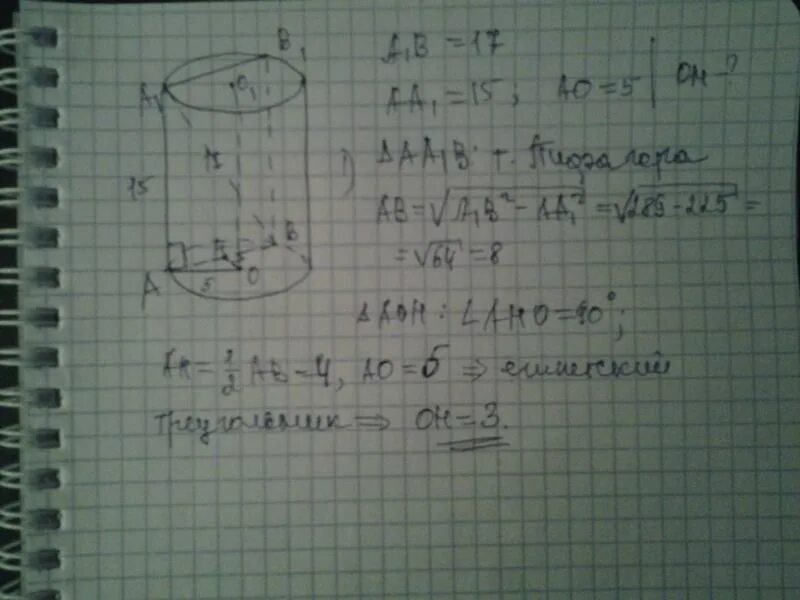 B₁
A₁
O₁
17
15
A
5
O
H
B
A₁B = 17
AA₁ = 15; AO = 5 | OH - ?
1) ΔAA₁B: т. Пифагора
AB = √A₁B² - AA₁² = √289 - 225 =
= √64 = 8
ΔAOH: ∠AHO = 90°;
AH = 1/2 AB = 4, AO = 5 ⇒ египетский
треугольник ⇒ OH = 3.